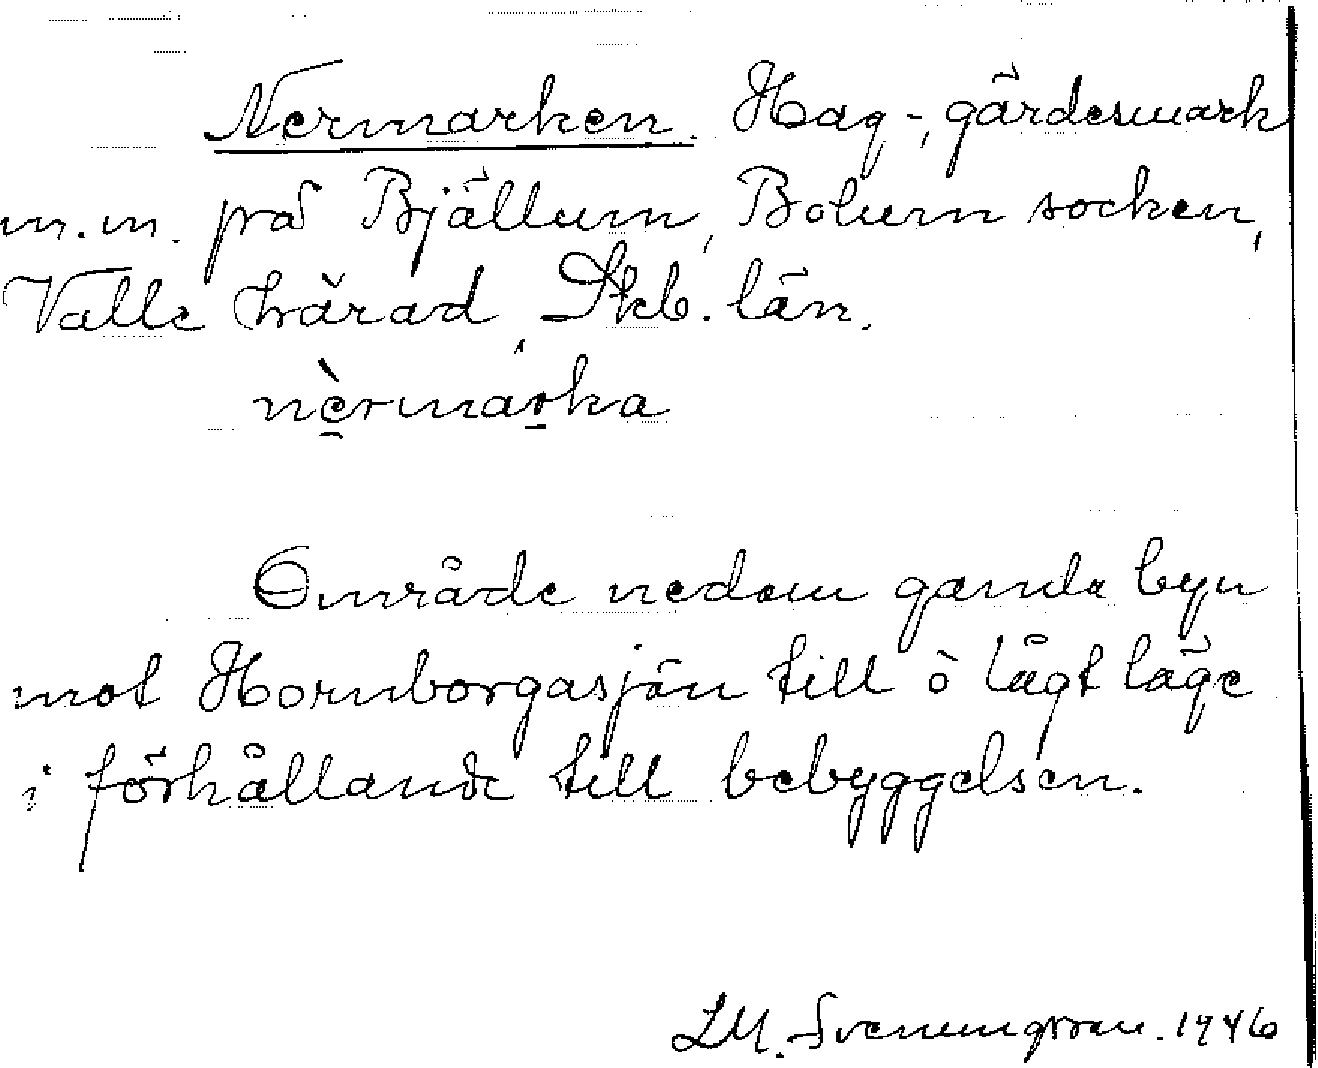 Nermarken. Hag-, gärdesmark
m.m. på Bjällum, Bolum socken,
Valle härad, Skb. län.
nèrmarka
Område nedom gamla byn
mot Hornborgasjön till o lågt läge
i förhållande till bebyggelsen.
LM. Svenungsson. 1946